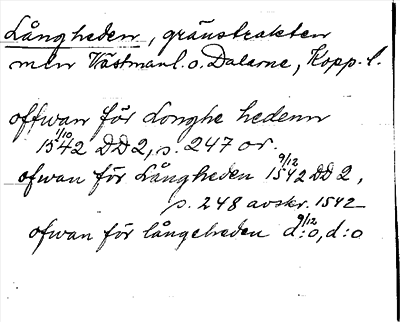 Långheden, gränstrakten
mln Västmanl. o. Dalarne, Kopp. l.
offwan för Longhe hedenn
1/10 1542 DD2, s. 247 or.
ofwan för Långheden 9/12 1542 DD 2,
s. 248 avskr. 1542
ofwan för långeheden 9/12 d:o, d:o